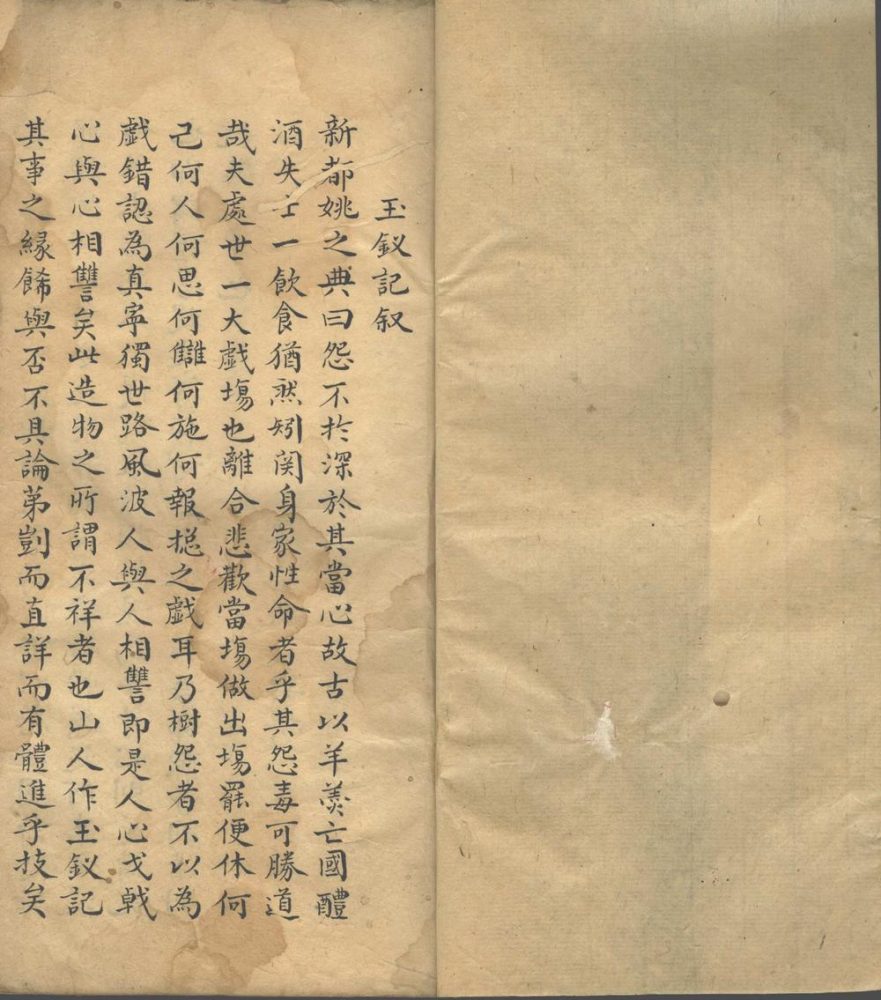 玉釵記叙
新都姚之典曰怨不扵深於其當心故古以羊羮亡國醴
酒失士一飲食猶然矧関身家性命者乎其怨毒可勝道
哉夫處世一大戯塲也離合悲歡當塲做出塲罷便休何
己何人何思何讎何施何報揔之戯耳乃樹怨者不以為
戯錯認為真寜獨世路風波人與人相讐即是人心戈戟
心與心相讐矣此造物之所謂不祥者也山人作玉釵記
其事之縁餙與否不具論第剴而直詳而有體進乎技矣